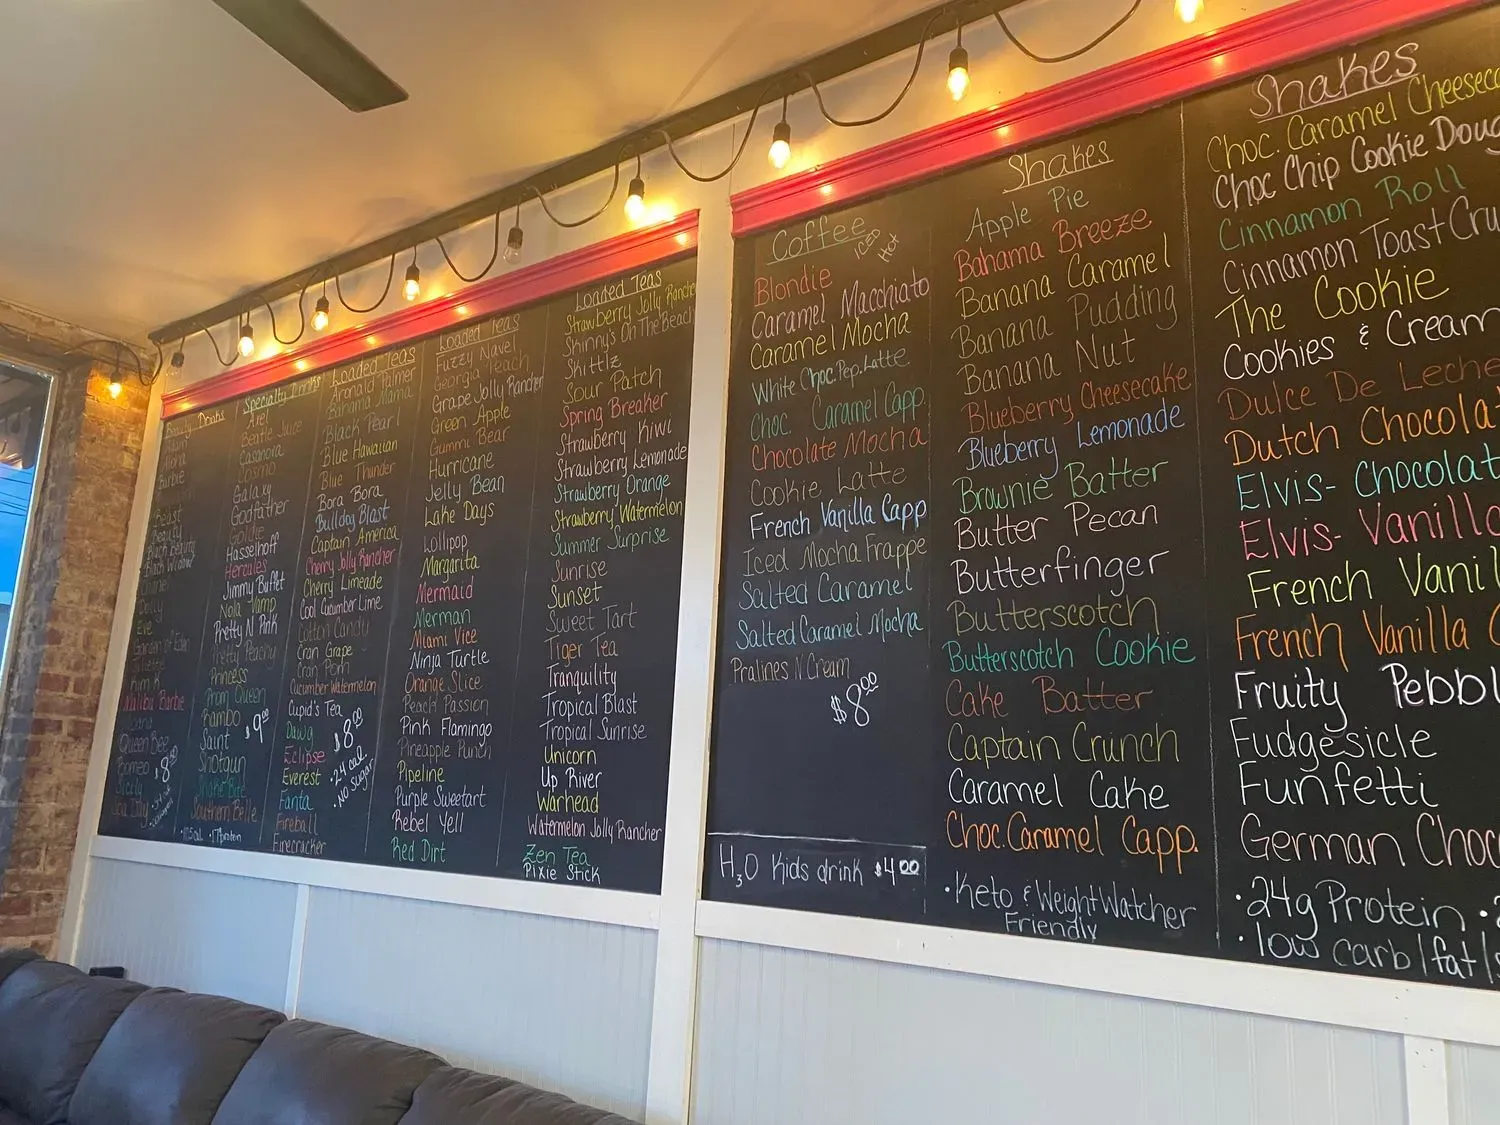 Beauty Drinks
Barbie
Beast
Beauty
Black Beauty
Black Widow
Eve
Garden of Eden
Kim K
Malibu Barbie
Queen Bee
Romeo
$8.00
Specialty Drinks
Axel
Beatle Juice
Casanova
Cosmo
Galaxy
Godfather
Goldie
Hasselhoff
Hercules
Jimmy Buffet
Nola Vamp
Pretty N Pink
Pretty Peachy
Princess
Prom Queen
Rambo
Saint
Shotgun
Snake Bite
Southern Belle
$9.00
Loaded Teas
Aronald Palmer
Bahama Mama
Black Pearl
Blue Hawaiian
Blue Thunder
Bora Bora
Bulldog Blast
Captain America
Cherry Jolly Rancher
Cherry Limeade
Cool Cucumber Lime
Cotton Candy
Cran Grape
Cran Pom
Cucumber Watermelon
Cupid's Tea
Dawg
Eclipse
Everest
Fanta
Fireball
Firecracker
$8.00
• 24 cal
• No sugar
Loaded Teas
Fuzzy Navel
Georgia Peach
Grape Jolly Rancher
Green Apple
Gummi Bear
Hurricane
Jelly Bean
Lake Days
Lollipop
Margarita
Mermaid
Merman
Miami Vice
Ninja Turtle
Orange Slice
Peach Passion
Pink Flamingo
Pineapple Punch
Pipeline
Purple Sweetart
Rebel Yell
Red Dirt
Loaded Teas
Strawberry Jolly Rancher
Skinny's On The Beach
Skittlz
Sour Patch
Spring Breaker
Strawberry Kiwi
Strawberry Lemonade
Strawberry Orange
Strawberry Watermelon
Summer Surprise
Sunrise
Sunset
Sweet Tart
Tiger Tea
Tranquility
Tropical Blast
Tropical Sunrise
Unicorn
Up River
Warhead
Watermelon Jolly Rancher
Zen Tea
Pixie Stick
Coffee
ICED
Hot
Blondie
Caramel Macchiato
Caramel Mocha
White Choc. Pep. Latte
Choc. Caramel Capp.
Chocolate Mocha
Cookie Latte
French Vanilla Capp
Iced Mocha Frappe
Salted Caramel
Salted Caramel Mocha
Pralines N Cream
$8.00
H3O Kids drink $4.00
Shakes
Apple Pie
Bahama Breeze
Banana Caramel
Banana Pudding
Banana Nut
Blueberry Cheesecake
Blueberry Lemonade
Brownie Batter
Butter Pecan
Butterfinger
Butterscotch
Butterscotch Cookie
Cake Batter
Captain Crunch
Caramel Cake
Choc. Caramel Capp.
• Keto & Weight Watcher
Friendly
Shakes
Choc. Caramel Cheeseca
Choc Chip Cookie Doug
Cinnamon Roll
Cinnamon Toast Cru
The Cookie
Cookies & Cream
Dulce De Leche
Dutch Chocola
Elvis- Chocolat
Elvis- Vanilla
French Vanil
French Vanilla C
Fruity Pebbl
Fudgesicle
Funfetti
German Choc
• 24g Protein •
• low carb/fat/s